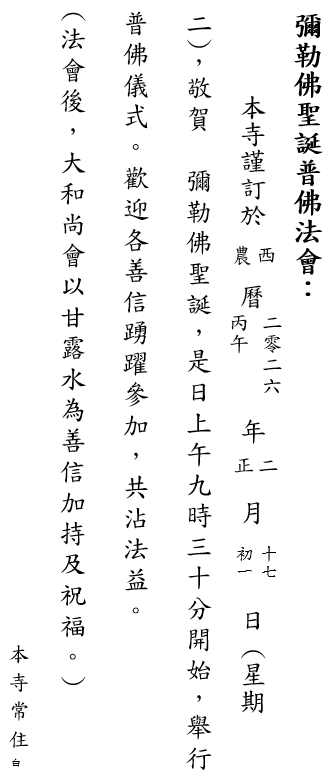 彌勒佛聖誕普佛法會：
本寺謹訂於西農曆二零二六丙午年二正月十七初一日（星期
二），敬賀　彌勒佛聖誕，是日上午九時三十分開始，舉行
普佛儀式。歡迎各善信踴躍參加，共沾法益。
（法會後，大和尚會以甘露水為善信加持及祝福。）
本寺常住白